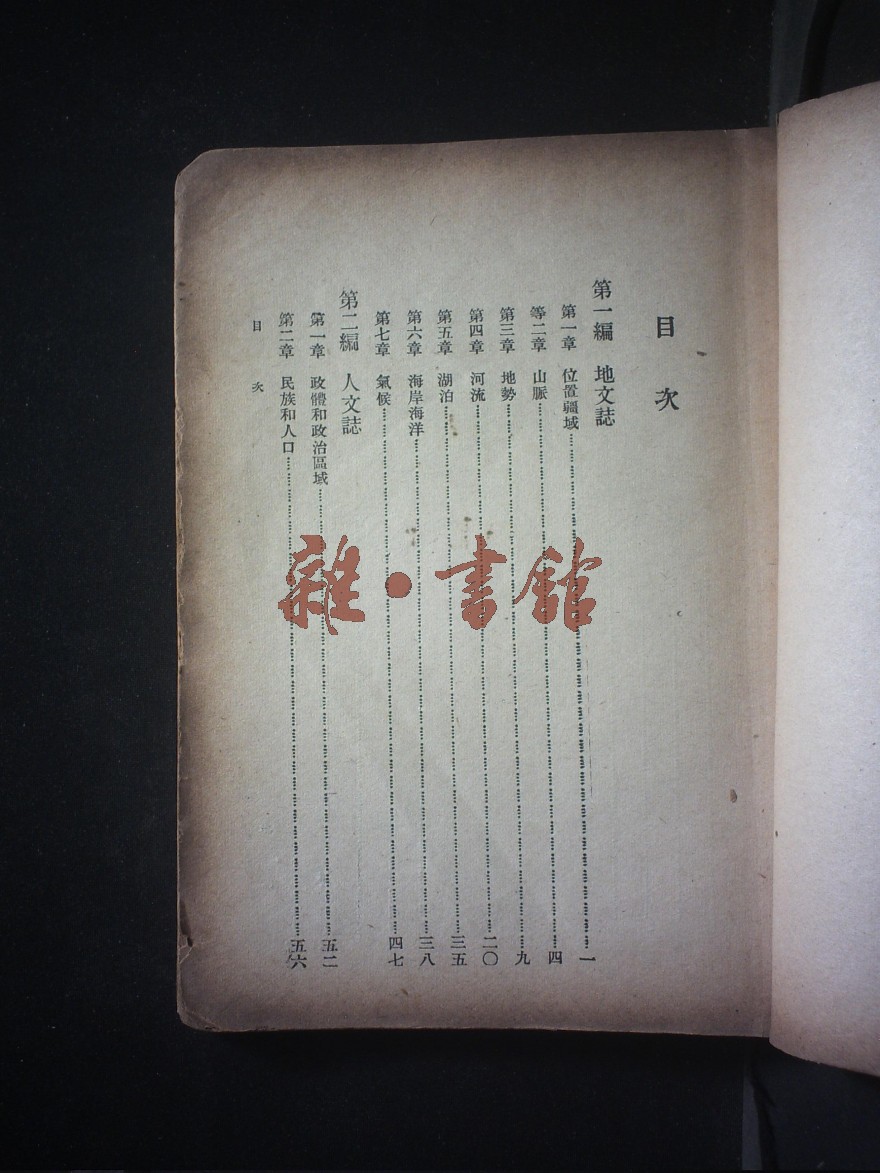 目次
第一編 地文誌
第一章 位置疆域…………一
等二章 山脈…………四
第三章 地勢…………九
第四章 河流…………二〇
第五章 湖泊…………三五
第六章 海岸海洋…………三八
第七章 氣候…………四七
第二編 人文誌
第一章 政體和政治區域…………五二
第二章 民族和人口…………五六
目次
雜·書館